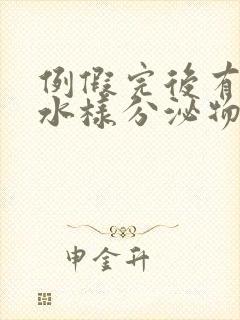 例假完後有
水樣分泌物
申金升